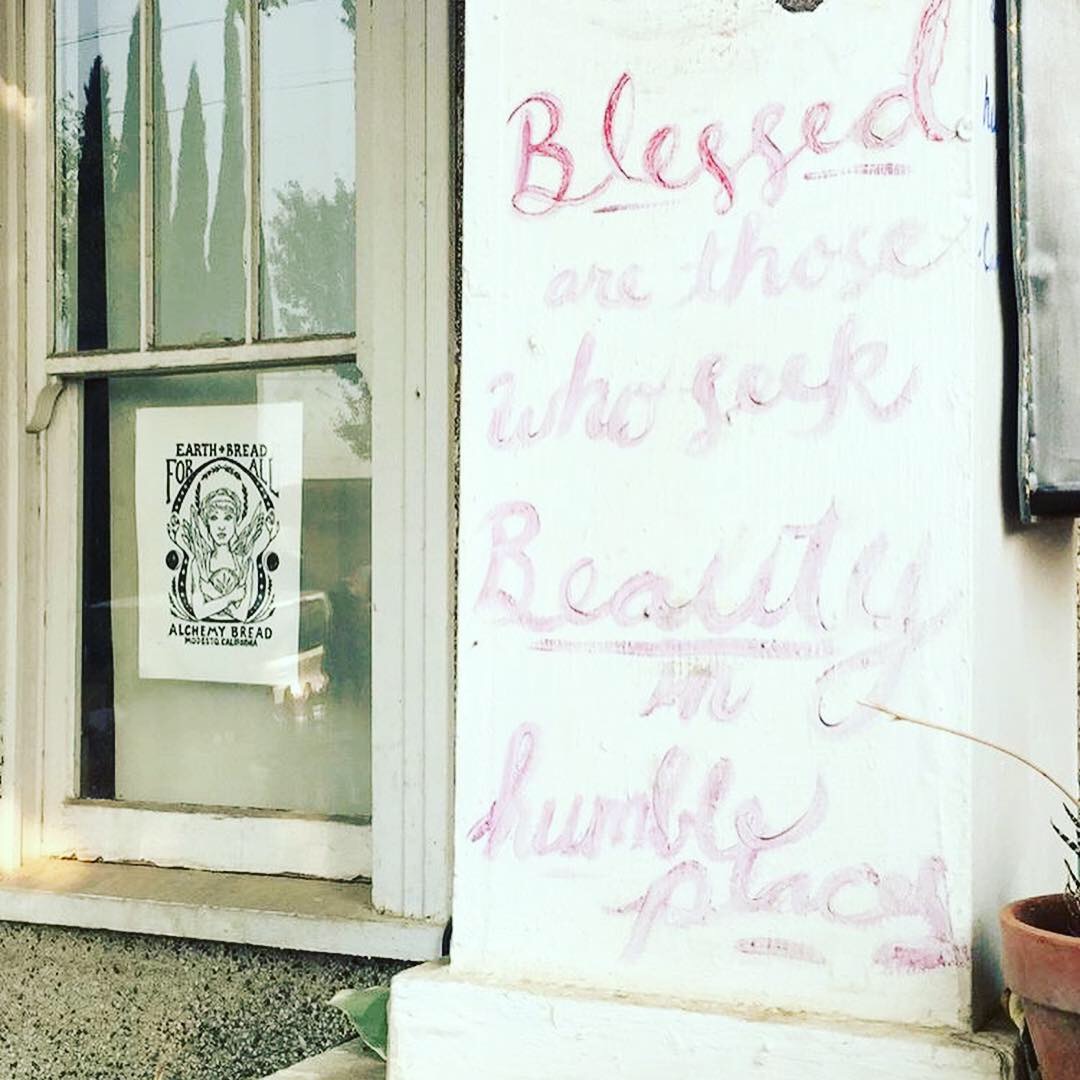 EARTH + BREAD
FOR ALL
ALCHEMY BREAD
MODESTO, CALIFORNIA
Blessed
are those
who seek
Beauty
in
humble
places